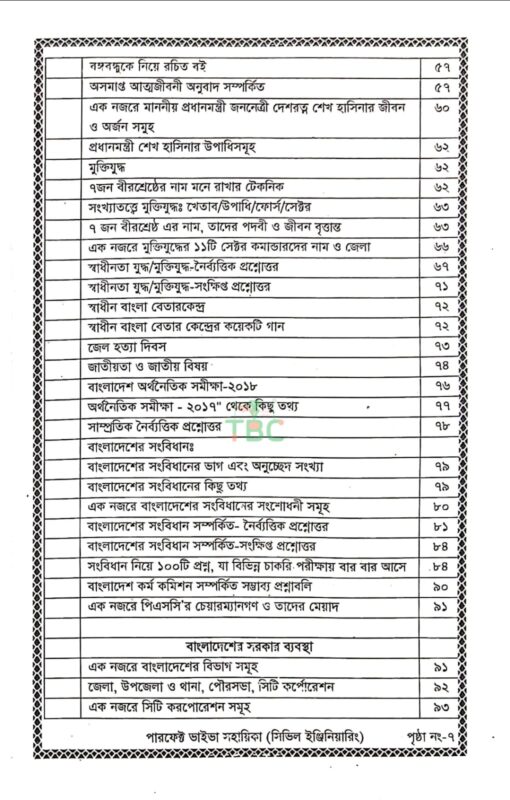 বঙ্গবন্ধুকে নিয়ে রচিত বই ৫৭
অসমাপ্ত আত্মজীবনী অনুবাদ সম্পর্কিত ৫৭
এক নজরে মাননীয় প্রধানমন্ত্রী জননেত্রী দেশরত্ন শেখ হাসিনার জীবন ৬০
ও অর্জন সমুহ
প্রধানমন্ত্রী শেখ হাসিনার উপাধিসমূহ ৬২
মুক্তিযুদ্ধ ৬২
৭জন বীরশ্রেষ্ঠের নাম মনে রাখার টেকনিক ৬২
সংখ্যাতত্ত্বে মুক্তিযুদ্ধঃ খেতাব/উপাধি/ফোর্স/সেক্টর ৬৩
৭ জন বীরশ্রেষ্ঠ এর নাম, তাদের পদবী ও জীবন বৃত্তান্ত ৬৩
এক নজরে মুক্তিযুদ্ধের ১১টি সেক্টর কমান্ডারদের নাম ও জেলা ৬৬
স্বাধীনতা যুদ্ধ/মুক্তিযুদ্ধ-নৈর্ব্যত্তিক প্রশ্নোত্তর ৬৭
স্বাধীনতা যুদ্ধ/মুক্তিযুদ্ধ-সংক্ষিপ্ত প্রশ্নোত্তর ৭১
স্বাধীন বাংলা বেতারকেন্দ্র ৭২
স্বাধীন বাংলা বেতার কেন্দ্রের কয়েকটি গান ৭২
জেল হত্যা দিবস ৭৩
জাতীয়তা ও জাতীয় বিষয় ৭৪
বাংলাদেশ অর্থনৈতিক সমীক্ষা-২০১৮ ৭৬
অর্থনৈতিক সমীক্ষা - ২০১৭" থেকে কিছু তথ্য ৭৭
সাম্প্রতিক নৈর্ব্যত্তিক প্রশ্নোত্তর ৭৮
TBC
বাংলাদেশের সংবিধানঃ
বাংলাদেশের সংবিধানের ভাগ এবং অনুচ্ছেদ সংখ্যা ৭৯
বাংলাদেশের সংবিধানের কিছু তথ্য ৭৯
এক নজরে বাংলাদেশের সংবিধানের সংশোধনী সমূহ ৮০
বাংলাদেশের সংবিধান সম্পর্কিত- নৈর্ব্যত্তিক প্রশ্নোত্তর ৮১
বাংলাদেশের সংবিধান সম্পর্কিত-সংক্ষিপ্ত প্রশ্নোত্তর ৮৪
সংবিধান নিয়ে ১০০টি প্রশ্ন, যা বিভিন্ন চাকরি পরীক্ষায় বার বার আসে ৮৪
বাংলাদেশ কর্ম কমিশন সম্পর্কিত সম্ভাব্য প্রশ্নাবলি ৯০
এক নজরে পিএসসি'র চেয়ারম্যানগণ ও তাদের মেয়াদ ৯১
বাংলাদেশের সরকার ব্যবস্থা
এক নজরে বাংলাদেশের বিভাগ সমূহ ৯১
জেলা, উপজেলা ও থানা, পৌরসভা, সিটি কর্পোরেশন ৯২
এক নজরে সিটি করপোরেশন সমূহ ৯৩
পারফেক্ট ভাইভা সহায়িকা (সিভিল ইঞ্জিনিয়ারিং) পৃষ্ঠা নং-৭